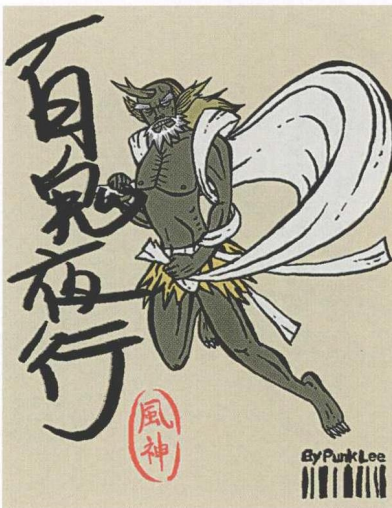 百鬼夜行
風神
By Punk Lee